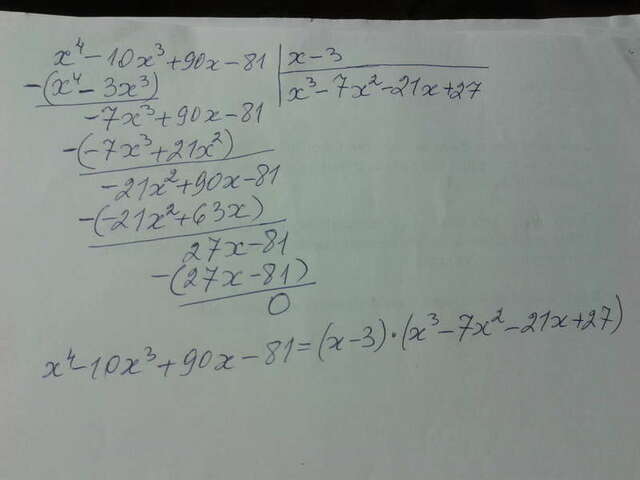 x⁴-10x³+90x-81 | x-3
-(x⁴-3x³) x³-7x²-21x+27
-7x³+90x-81
-(-7x³+21x²)
-21x²+90x-81
-(-21x²+63x)
27x-81
-(27x-81)
0
x⁴-10x³+90x-81=(x-3)·(x³-7x²-21x+27)